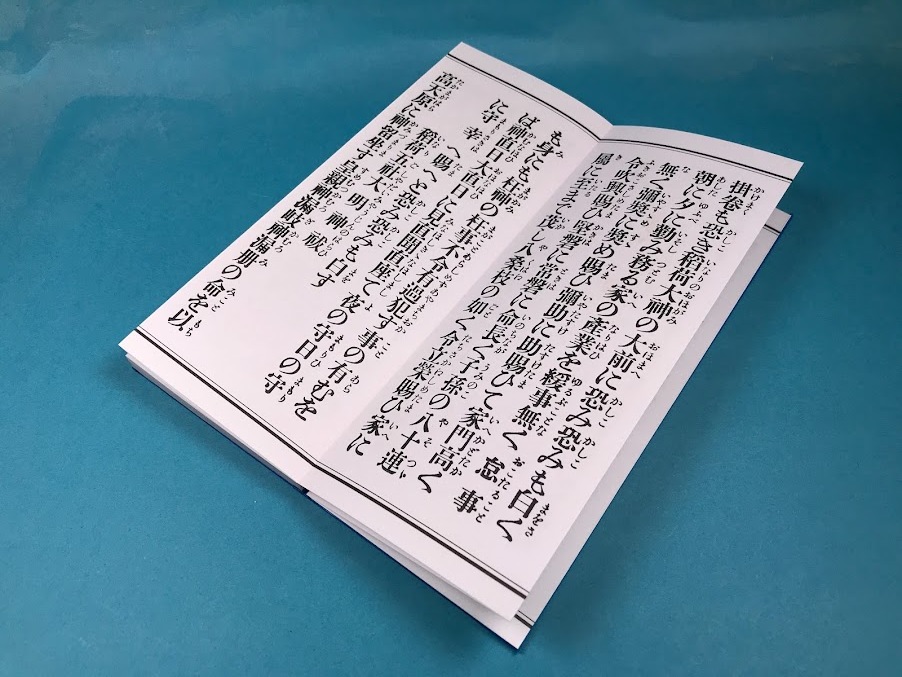 掛巻も恐き稻荷大神の大前に恐み恐みも白く
朝に夕に勤み務る家の産業を緩事無く怠事
無く彌奨に奨め賜ひ彌助に助賜ひて家門高く
令吹興賜ひ堅磐に常磐に命長く子孫の八十連
屬に至まで茂し八桑枝の如く令立榮賜ひ家に
も身にも枉神の枉事不令有過犯す事の有むを
ば神直日大直日に見直聞直座て夜の守日の守
に守幸へ賜へと恐み恐みも白す
稻荷五社大明神祓
高天原に神留坐す皇親神漏岐神漏册の命を以